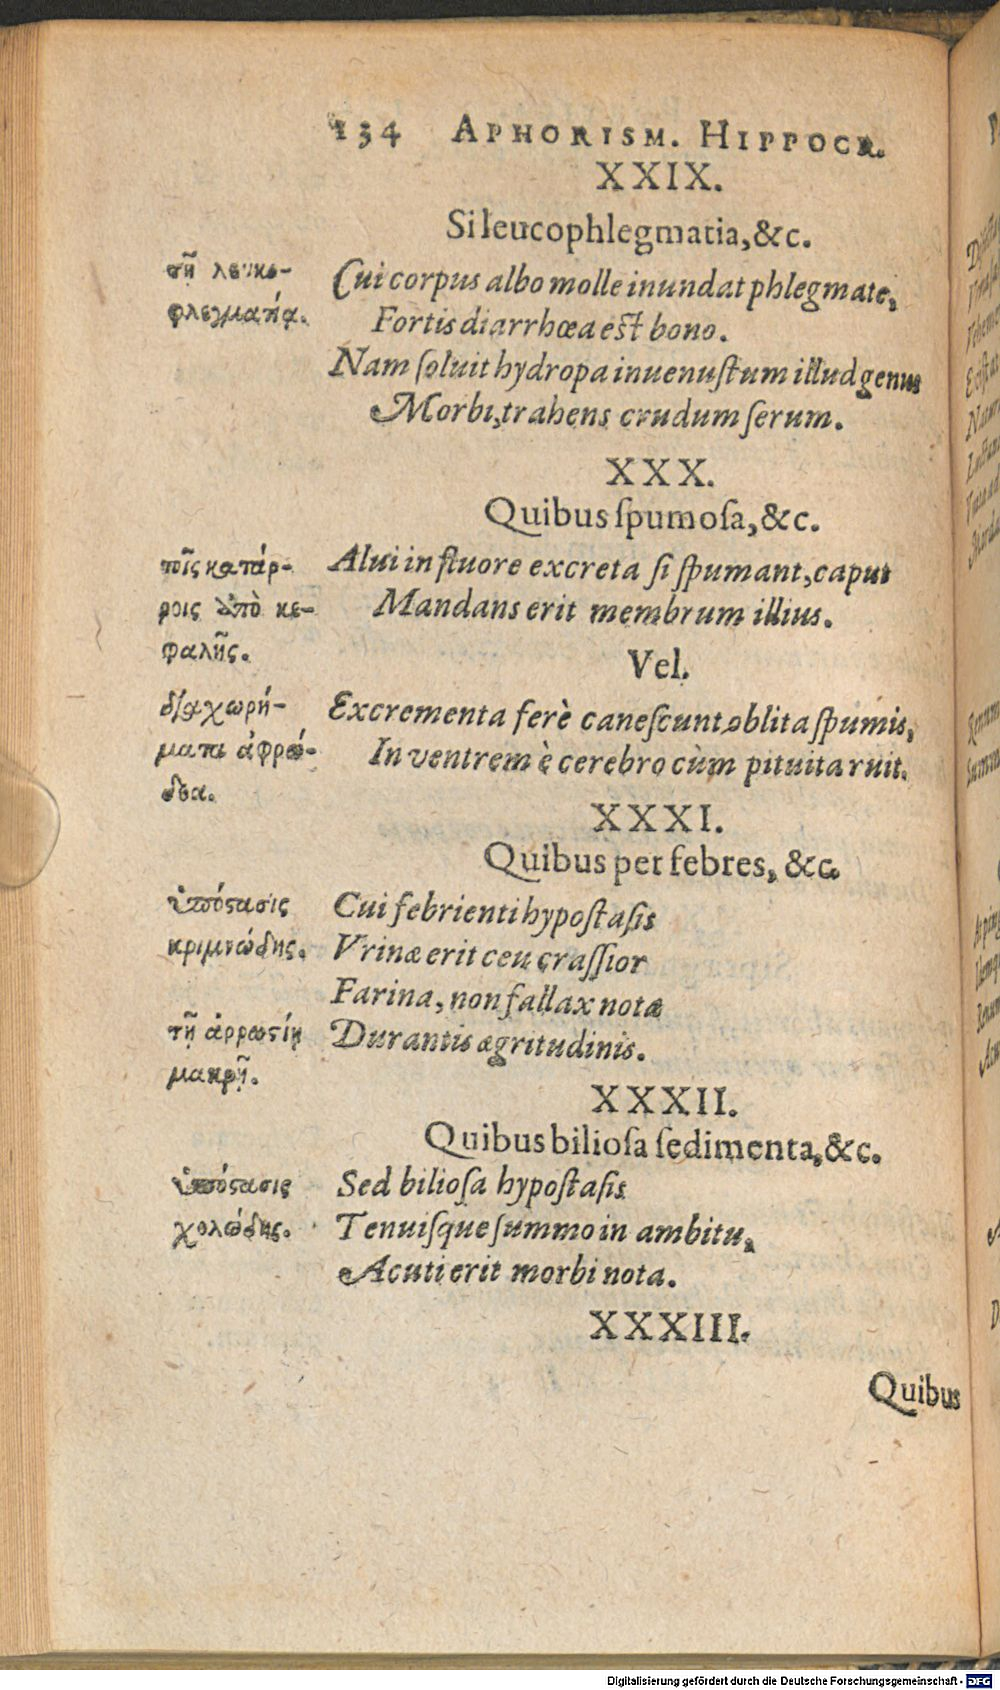 134 APHORISM. HIPPOCR.
XXIX.
Si leucophlegmatia, &c.
τῇ λευκο-
φλεγματίᾳ.
Cui corpus albo molle inundat phlegmate,
Fortis diarrhœa est bono.
Nam ſoluit hydropa inuenuſtum illud genus
Morbi, trahens crudum ſerum.
XXX.
Quibus ſpumoſa, &c.
τοῖς κατάρ-
ροις ἀπὸ κε-
φαλῆς.
Alui in fluore excreta ſi ſpumant, caput
Mandans erit membrum illius.
Vel.
διαχωρή-
ματα ἀφρώ-
δεα.
Excrementa ferè caneſcunt oblita ſpumis,
In ventrem è cerebro cùm pituita ruit.
XXXI.
Quibus per febres, &c.
ὑπόστασις
κριμνώδης.
Cui febrienti hypoſtaſis
Vrinæ erit ceu craſſior
Farina, non fallax nota
τῇ ἀρρωστίῃ
μακρῇ.
Durantis ægritudinis.
XXXII.
Quibus bilioſa ſedimenta, &c.
ὑπόστασις
χολώδης.
Sed bilioſa hypoſtaſis
Tenuiſque ſummo in ambitu,
Acuti erit morbi nota.
XXXIII.
Quibus
Digitalisierung gefördert durch die Deutsche Forschungsgemeinschaft - DFG